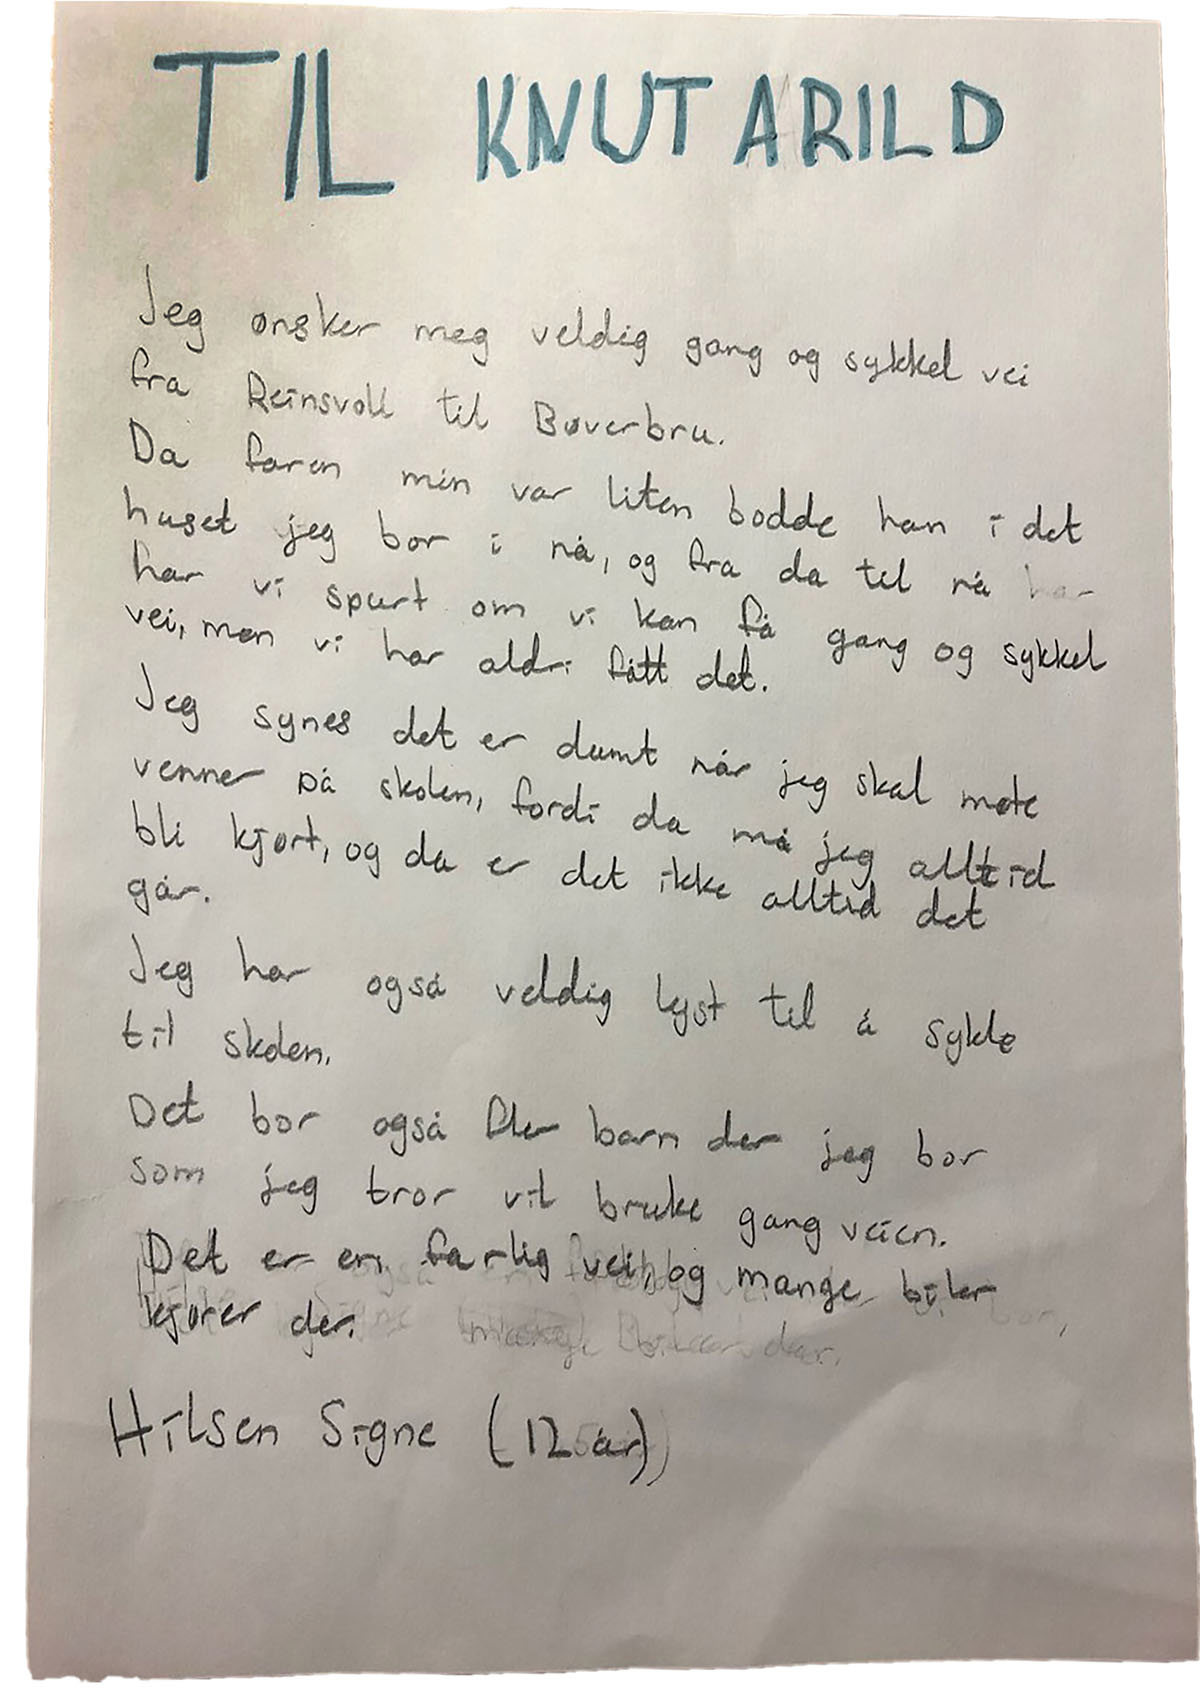 TIL KNUT ARILD
Jeg ønsker meg veldig gang og sykkel vei
fra Reinsvoll til Bøverbru.
Da faren min var liten bodde han i det
huset jeg bor i nå, og fra da til nå har
har vi spurt om vi kan få gang og sykkel
vei, men vi har aldri fått det.
Jeg synes det er dumt når jeg skal møte
venner på skolen, fordi da må jeg alltid
bli kjørt, og da er det ikke alltid det
går.
Jeg har også veldig lyst til å sykle
til skolen.
Det bor også fler barn der jeg bor
som jeg tror vil bruke gang veien.
Det er en farlig vei, og mange biler
kjører der.
Hilsen Signe (12 år)